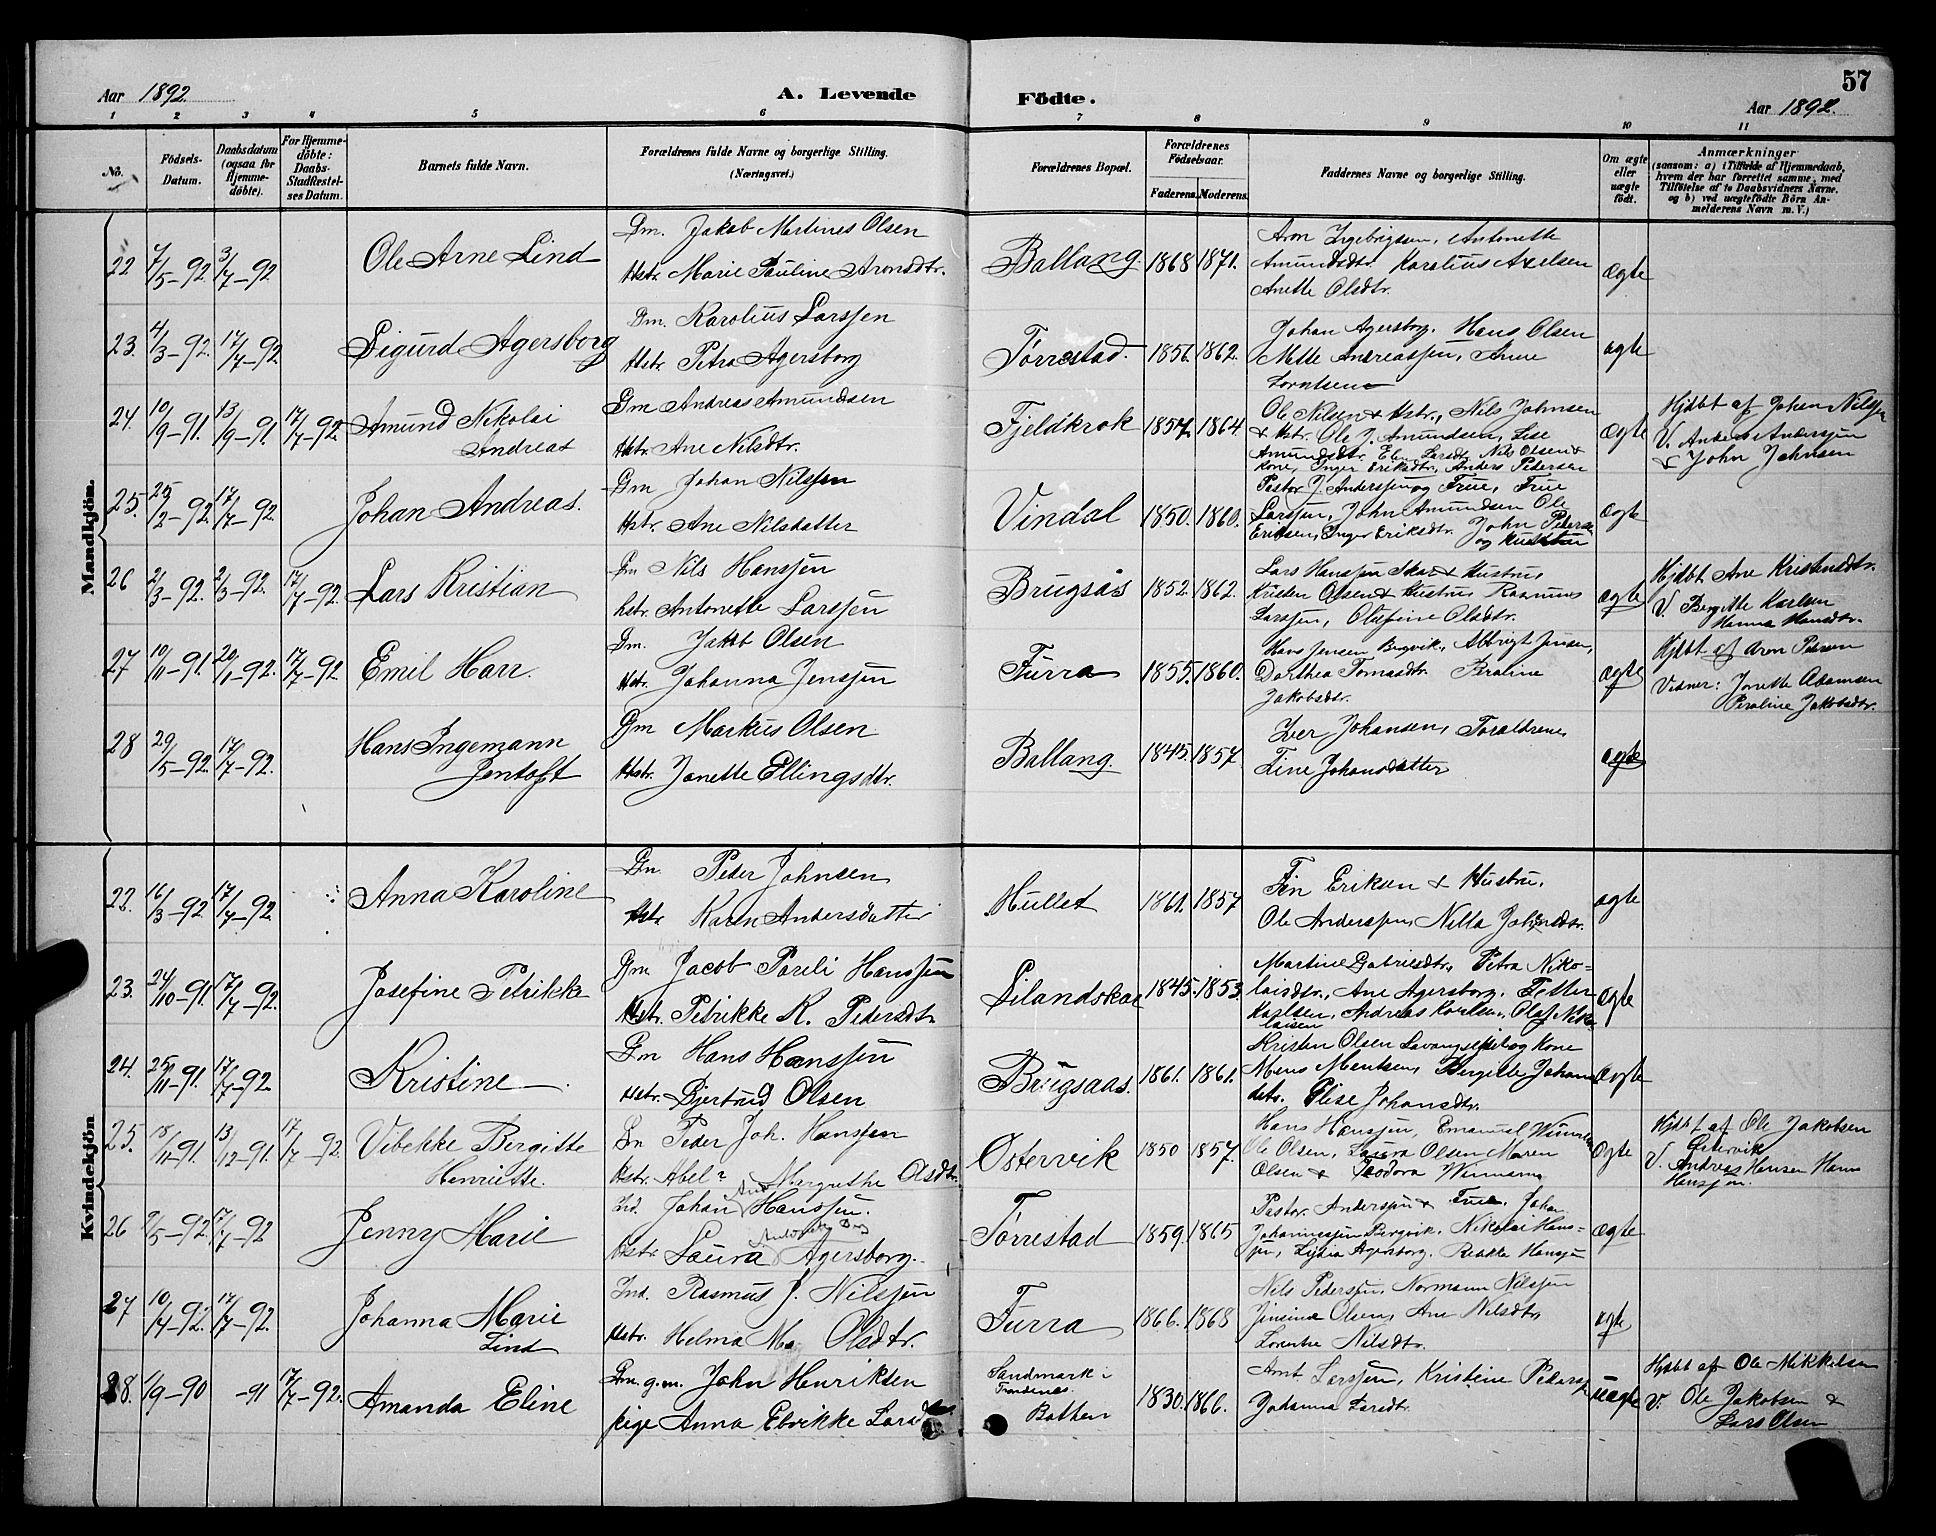 Aar 1892.
A. Levende
Födte.
57
Aar 1892.
1 2 3 4 5 6 7 8 9 10 11
No.
Födsels-Datum.
Daabsdatum (ogsaa for Hjemme-döbte).
For Hjemme-döbte: Daabs-Stadfæstel-ses Datum.
Barnets fulde Navn.
Forældrenes fulde Navne og borgerlige Stilling. (Næringsvei.)
Forældrenes Bopæl.
Forældrenes Födselsaar.
Faderens. Moderens.
Faddernes Navne og borgerlige Stilling.
Om ægte eller uægte födt.
Anmærkninger
(saasom: a) i Tilfælde af Hjemmedaab,
hvem der har forrettet samme, med
Tilföielse af to Daabsvidners Navne,
og b) ved uægtefödte Börn An-
melderens Navn m. V.)
Mandkjön.
22 7/5-92 3/7-92 Ole Arne Lind
Gm. Jakob Martines Olsen
Hstr. Marie Pauline Aronsdtr.
Ballang 1868 1871.
Aron Ingebrigtsen, Antonette
Amundsdtr. Karolius Axelsen
Anette Olsdtr.
ægte
23. 4/3-92. 17/7-92 Sigurd Agersborg
Gm. Karolius Larssen
Hstr. Petra Agersborg
Tørrestad. 1856. 1862.
Johan Agersborg. Hans Olsen
Mette Andreassen, Anne
Lorntsen
ægte
24. 10/9-91. 13/9-91 17/7-92 Amund Nikolai
Andreas
Gm Andreas Amundsen
Hstr. Ane Nilsdtr.
Fjeldkrok 1857 1864
Ole Nilsen & Hstr., Nils Johnsen
& Hstr. Ole J. Amundsen, Lise
Amundsdtr. Elen Larsdtr. Nils Olsen &
Kone, Inger Eriksdtr., Anders Pedersen
ægte
Hjdbt af Johan Nilssen
V. Anders Anderssen
& John Johnsen
25. 25/2-92. 17/7-92. Johan Andreas.
Gm Johan Nilssen
Hstr. Ane Nilsdatter
Vindal 1850. 1860.
Pastor J. Anderssen og Frue, Frue
Larssen, John Amundsen Ole
Eriksen, Inger Eriksdtr. John Peders
og Hustru
ægte
26 2/3-92. 2/3-92. 17/7-92. Lars Kristian
Gm Nils Hanssen
Hstr. Antonette Larssen
Brugsås 1852. 1862.
Lars Hanssen Skar & Hustru,
Kristen Olsen & Hustru Rasmus
Larssen, Olefine Olsdtr.
ægte
Hjdbt Ane Kristensdtr.
V. Bergitte Karlsen
Hanna Hansdtr.
27 10/11-91. 20/1-92. 17/7-92 Emil Harr.
Gm. Jakob Olsen
Hstr. Johanna Jenssen
Furra 1855. 1860.
Hans Jensen Bergvik, Albrigt Jensen,
Dorthea Tomasdtr. Peroline
Jakobsdtr.
ægte
Hjdbt af Aron Petersen
Vidner: Jonette Adamsen
Peroline Jakobsdtr.
28 29/5-92 17/7-92. Hans Ingemann
Jentoft
Gm Markus Olsen
Hstr. Jonette Ellingsdtr.
Ballang. 1845. 1857
Iver Johansen, Forældrene
Line Johansdatter
ægte
Kvindekjön
22. 16/3-92 17/7-92 Anna Karoline
Gm. Peder Johnsen
Hstr. Karen Andersdatter
Hullet 1861. 1857
Fin Eriksen & Hustru.
Ole Anderssen, Nilla Johnsdtr.
ægte
23. 24/10-91. 17/7-92. Josefine Petrikke
Gm Jacob Pareli Hanssen
Hstr. Petrikke K. Pedersdtr
Lilandskar 1845. 1853.
Martine Gabrielsdtr, Petra Niko-
laisdtr., Ane Agersborg. Petter
Karlsen, Andreas Karlsen, Olaf Niko
laisen
ægte
24. 25/11-91. 17/7-92 Kristine
Gm Hans Hanssen
Hstr. Gjertrud Olsen
Brugsaas. 1861. 1861.
Kristen Olsen Lavangseidet og Kone
Mons Montsen, Bergitte Johans
dtr. Elise Johansdtr.
ægte
25. 18/11-91 13/12-91. 17/7-92. Vibekke Bergitte
Henriette.
Gm Peder Joh. Hanssen
Hstr. Abel Margrethe Olsdtr.
Østervik 1850 1857.
Hans Hanssen, Emanuel
Ole Olsen, Laura Olsen Maren
Olsen & Teodora
ægte
Hjdbt af Ole Jakobsen
Østervik
V. Andreas Hansen Hans
Hanssen.
26 2/5-92. 17/7-92 Jenny Marie
Ind. Johan Hanssen.
Hstr. Laura Agersborg.
Tørrestad 1859. 1865
Pastor Anderssen & Frue. Johan
Johannessen Bergvik, Nikolai Hans-
sen, Lydia Agersborg. Hanssen
ægte
27 10/4-92. 17/7-92. Johanna Marie
Lind
Ind. Rasmus J. Nilssen
Hstr. Helma M. Olsdtr.
Furra 1866. 1868
Nils Pederssen, Normann Nilssen
Jensine Olsen, Ane Nilsdtr,
Lorentse Nilsdtr.
ægte
28. 1/9-90 -91 17/7-92. Amanda Eline
Gm. g.m. John Henriksen
pige Anna Elvikke Larsdtr
Sandmark i
Trondenes.
Botten
1830. 1866.
Arnt Larssen, Kristine Peders
Johanna Larsdtr.
uægte
Hjdbt af Ole Mikkelsen
V. Ole Jakobsen &
Lars Olsen